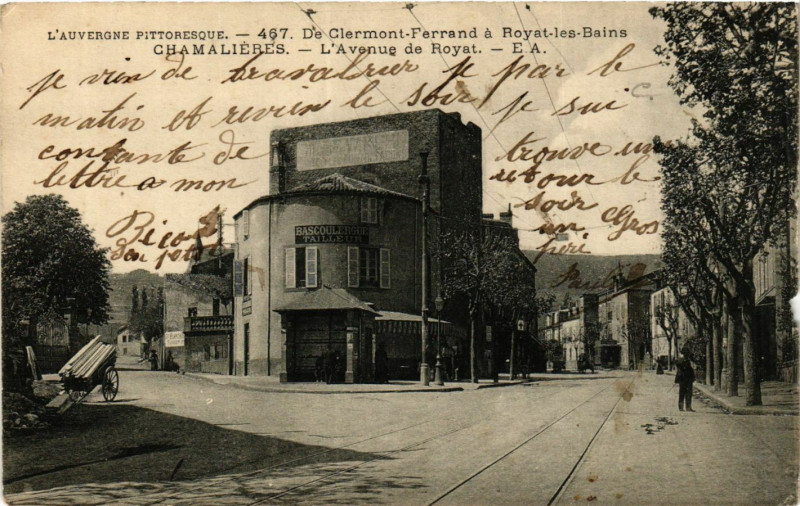 L'AUVERGNE PITTORESQUE. — 467. De Clermont-Ferrand à Royat-les-Bains
CHAMALIÈRES. — L'Avenue de Royat. — E A.
je vien de travalier je par le
matin et revien le soir je sui
contante de trouve une
lettre a mon retour le
soir un gros
père
Paul
BASCOULERGUE
TAILLEUR